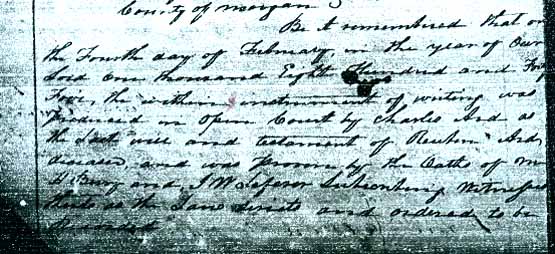 County of Morgan
Be it remembered that on
the Fourth day of February, in the year of Our
Lord One thousand Eight Hundred and Forty
Five, the within instrument of writing was
produced in Open Court by Charles Ard as
the Last will and testament of Reuben Ard
deceased, and was proven by the Oaths of
and J W Subscribing Witnesses
thereto as the Law directs and ordered to be
Recorded